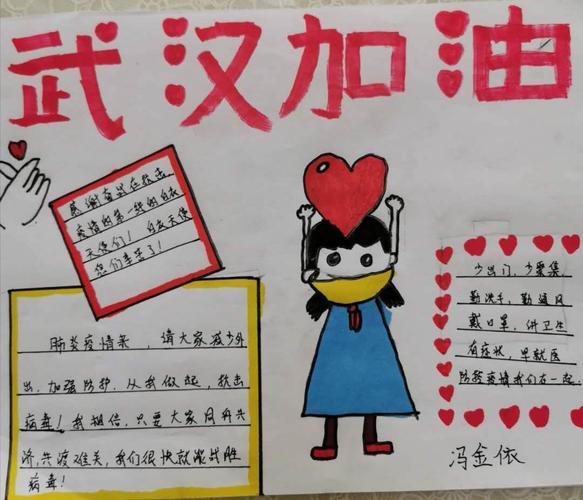 武汉加油
感谢奋战在抗击
疫情的第一线的白衣
天使们！白衣天使
您们辛苦了！
肺炎疫情来，请大家减少外
出，加强防护，从我做起，抗击
病毒！我相信，只要大家同舟共
济，共渡难关，我们很快就能战胜
病毒！
少出门，少聚集
勤洗手，勤通风
戴口罩，讲卫生
有症状，早就医
防控疫情我们在一起
冯金依